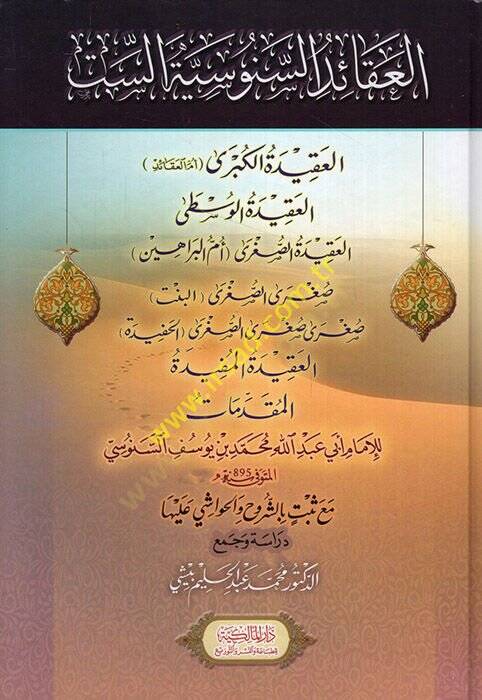 العَقَائِدُ السَّنُوسِيَّةُ السِّت
العَقِيدَةُ الكُبْرَى (أمّ العَقَائد)
العَقِيدَةُ الوُسْطَى
العَقِيدَةُ الصُّغْرَى (أُمُّ البَرَاهِين)
صُغْرَى الصُّغْرَى (البِنْت)
صُغْرَى صُغْرَى الصُّغْرَى (الحَفِيدَة)
العَقِيدَةُ المُفِيدَةُ
المُقَدِّمَاتُ
لِلإِمَامِ أَبِي عَبْدِ اللهِ مُحَمَّد بْنِ يُوسُف السَّنُوسِيِّ
المتوفى سنة 895هـ
مَعَ ثَبْتٍ بِالشُّرُوحِ وَالحَوَاشِي عَلَيْهَا
دِرَاسَة وَجَمع
الدّكتور محمد عبد الحليم بيشي
دَارُ المَالِكِيَّة
للطباعة والنشر والتوزيع